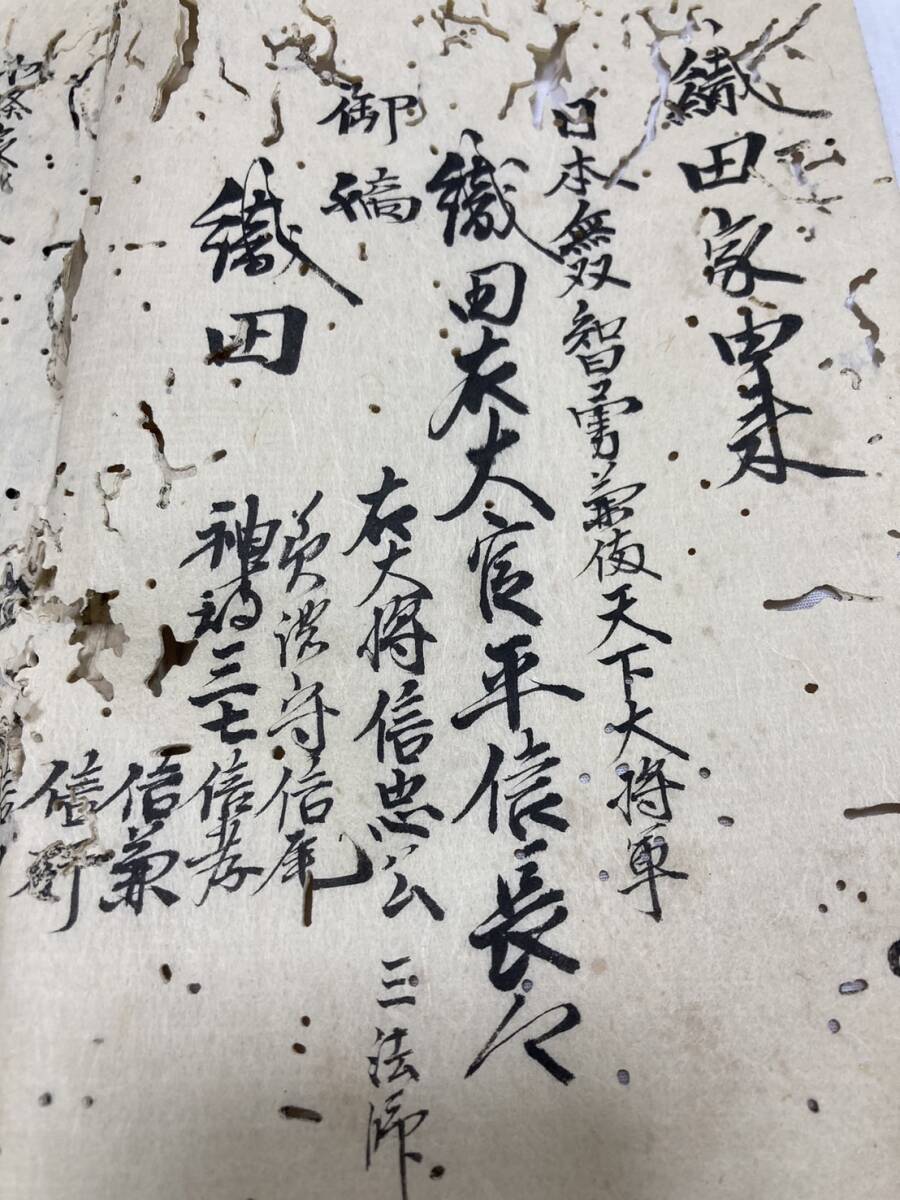 織田家由来
日本無双智勇兼備天下大将軍
織田右大官平信長公
御嫡
右大将信忠公 三法師
織田
美濃守信雄
神戸三七信孝
信兼
信